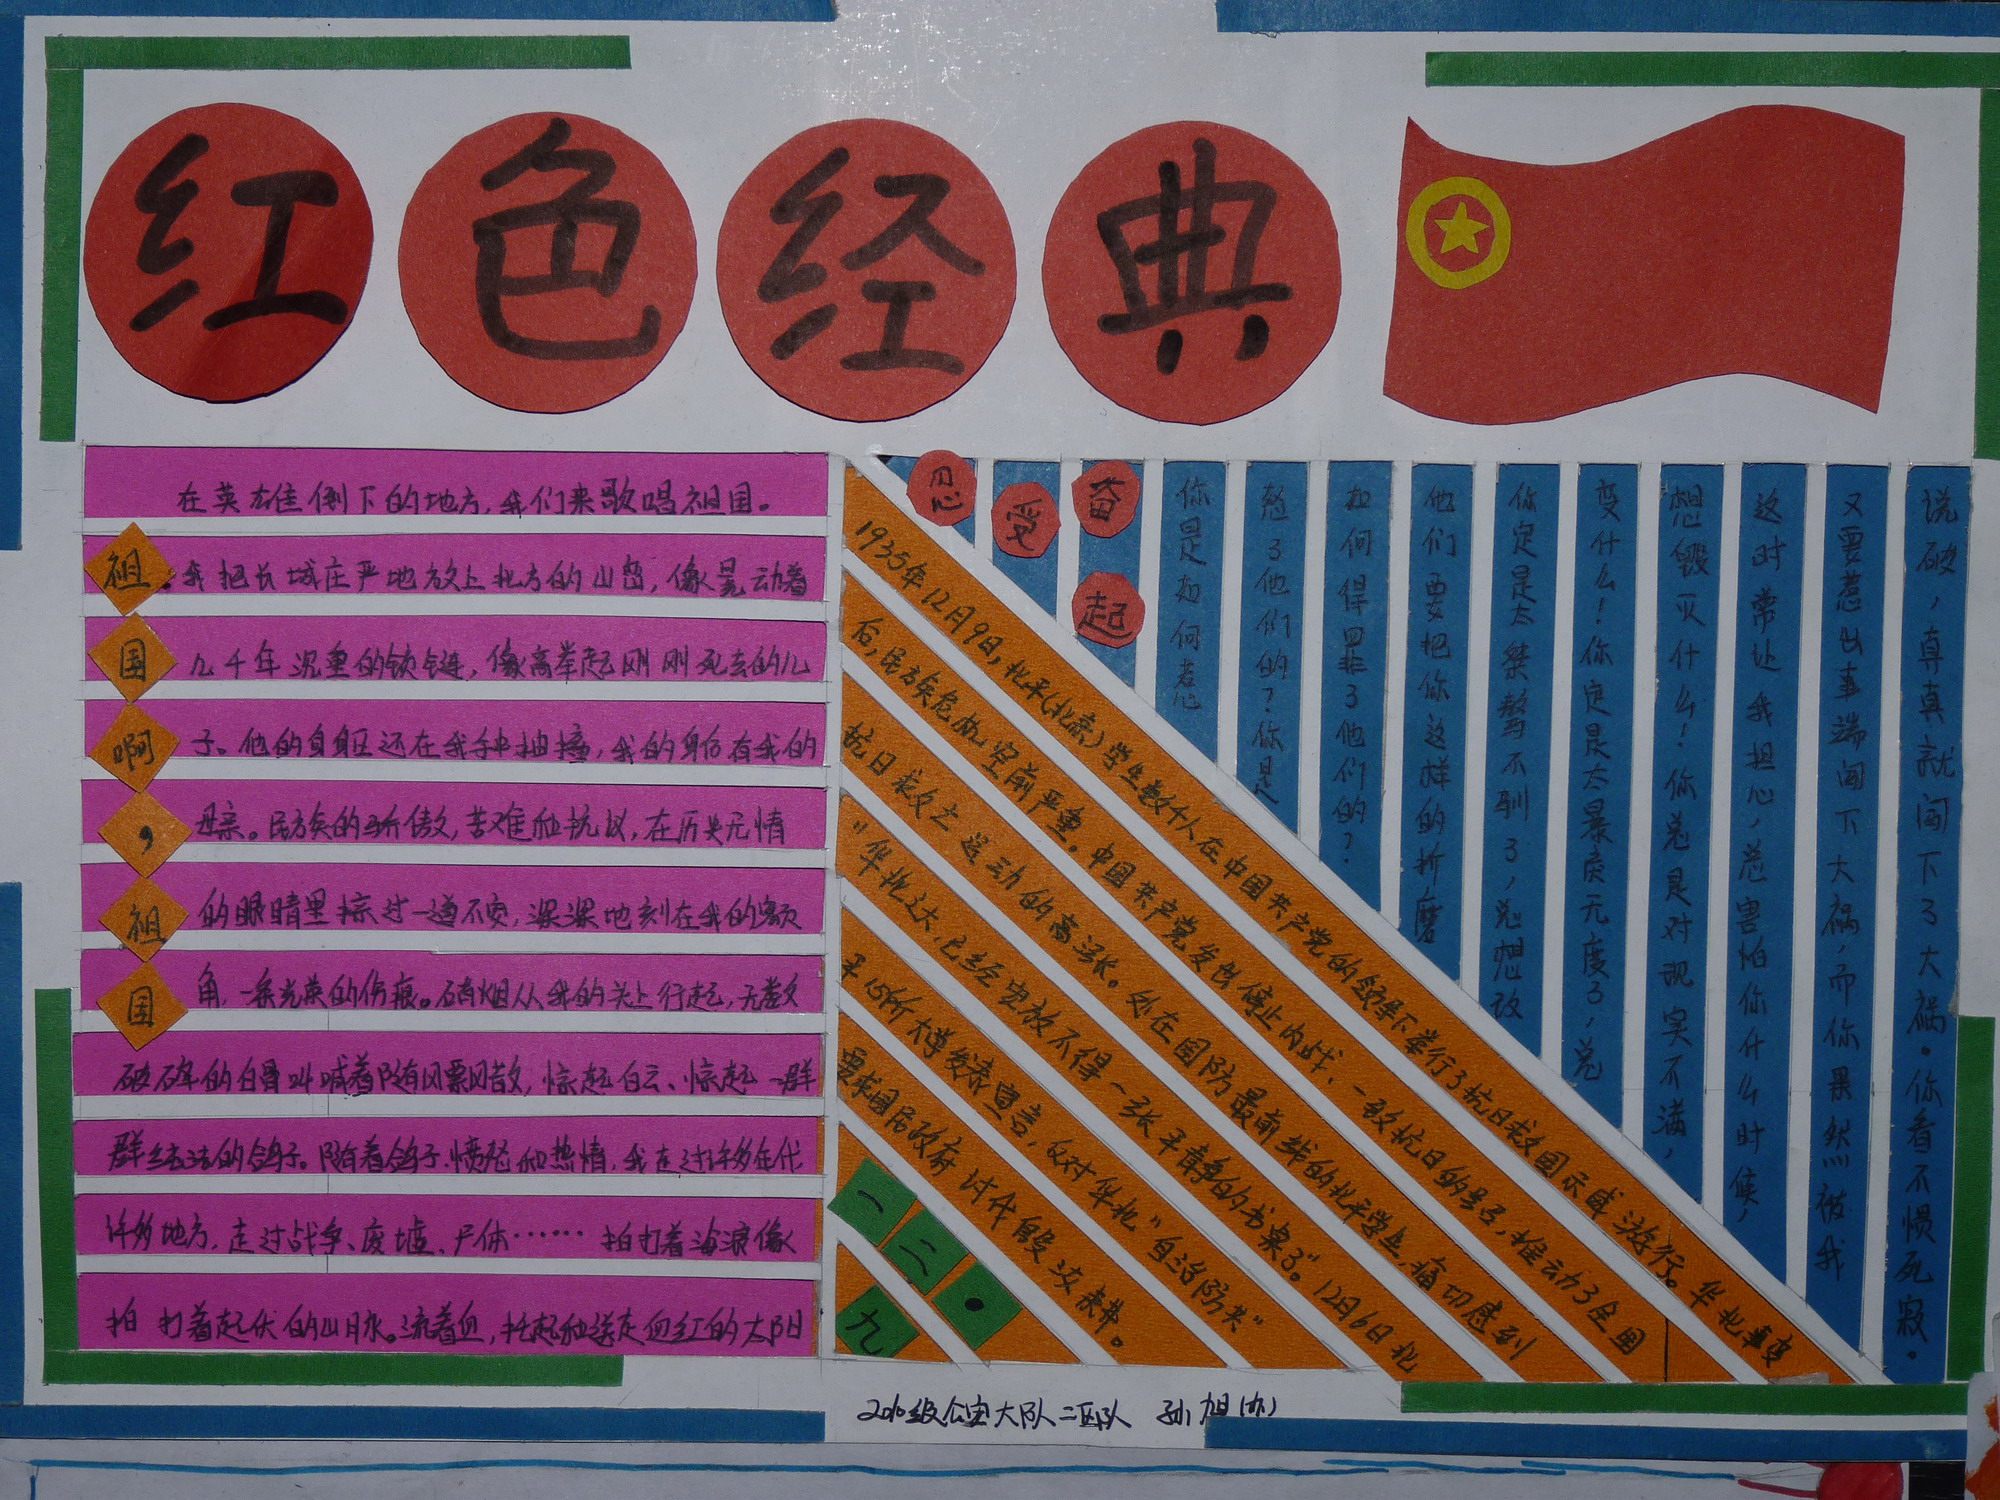 红色经典
祖国啊，祖国
在英雄倒下的地方，我们来歌唱祖国。
我把长城庄严地放上北方的山峦，像晃动着
几千年沉重的锁链，像高举起刚刚死去的儿
子。他的身躯还在我手中抽搐，我的身后有我的
母亲。民族的骄傲，苦难和抗议，在历史无情
的眼睛里掠过一道不安，深深地刻在我的额
角，一条光荣的伤痕。硝烟从我的头上升起，无数
破碎的白骨叫喊着随风飘散，惊起白云、惊起一群
群纯洁的鸽子。随着鸽子、愤怒和热情，我走过许多年代
许多地方，走过战争、废墟、尸体……拍打着海浪像
拍打着起伏的山脉。流着血，托起和送走血红的太阳
一二·九
1935年12月9日，北平（北京）学生数千人在中国共产党的领导下举行了抗日救国示威游行。华北事变
后，民族危机空前严重。中国共产党发出停止内战、一致抗日的号召，推动了全国
抗日救亡运动的高涨。处在国防最前线的北平学生，痛切感到
“华北之大，已经安放不得一张平静的书桌了”。12月6日北
平15所大学发表宣言，反对华北“自治防共”
要求国民政府讨伐殷汝耕。
忍受
奋起
你是如何惹
怒了他们的？你是
如何得罪了他们的？
他们要把你这样的折磨
你定是太桀骜不驯了，总想改
变什么！你定是太暴戾无度了，总
想毁灭什么！你总是对现实不满，
这时常让我担心，总害怕你什么时候，
又要惹出事端闯下大祸，而你果然被我
说破，真真就闯下了大祸。你看不惯死寂。
公安大队二区队 孙旭